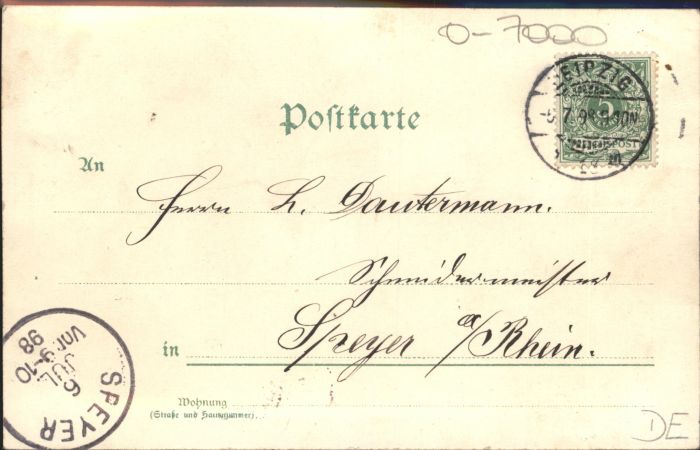 O-7000
LEIPZIG
5
7.98.9-10N
POST
Postkarte
An
Herrn L. Dautermann.
Schneidermeister
in Speyer a/Rhein.
Wohnung
(Straße und Hausnummer).
SPEYER
6
JUL
Vor. 9-10
98
DE